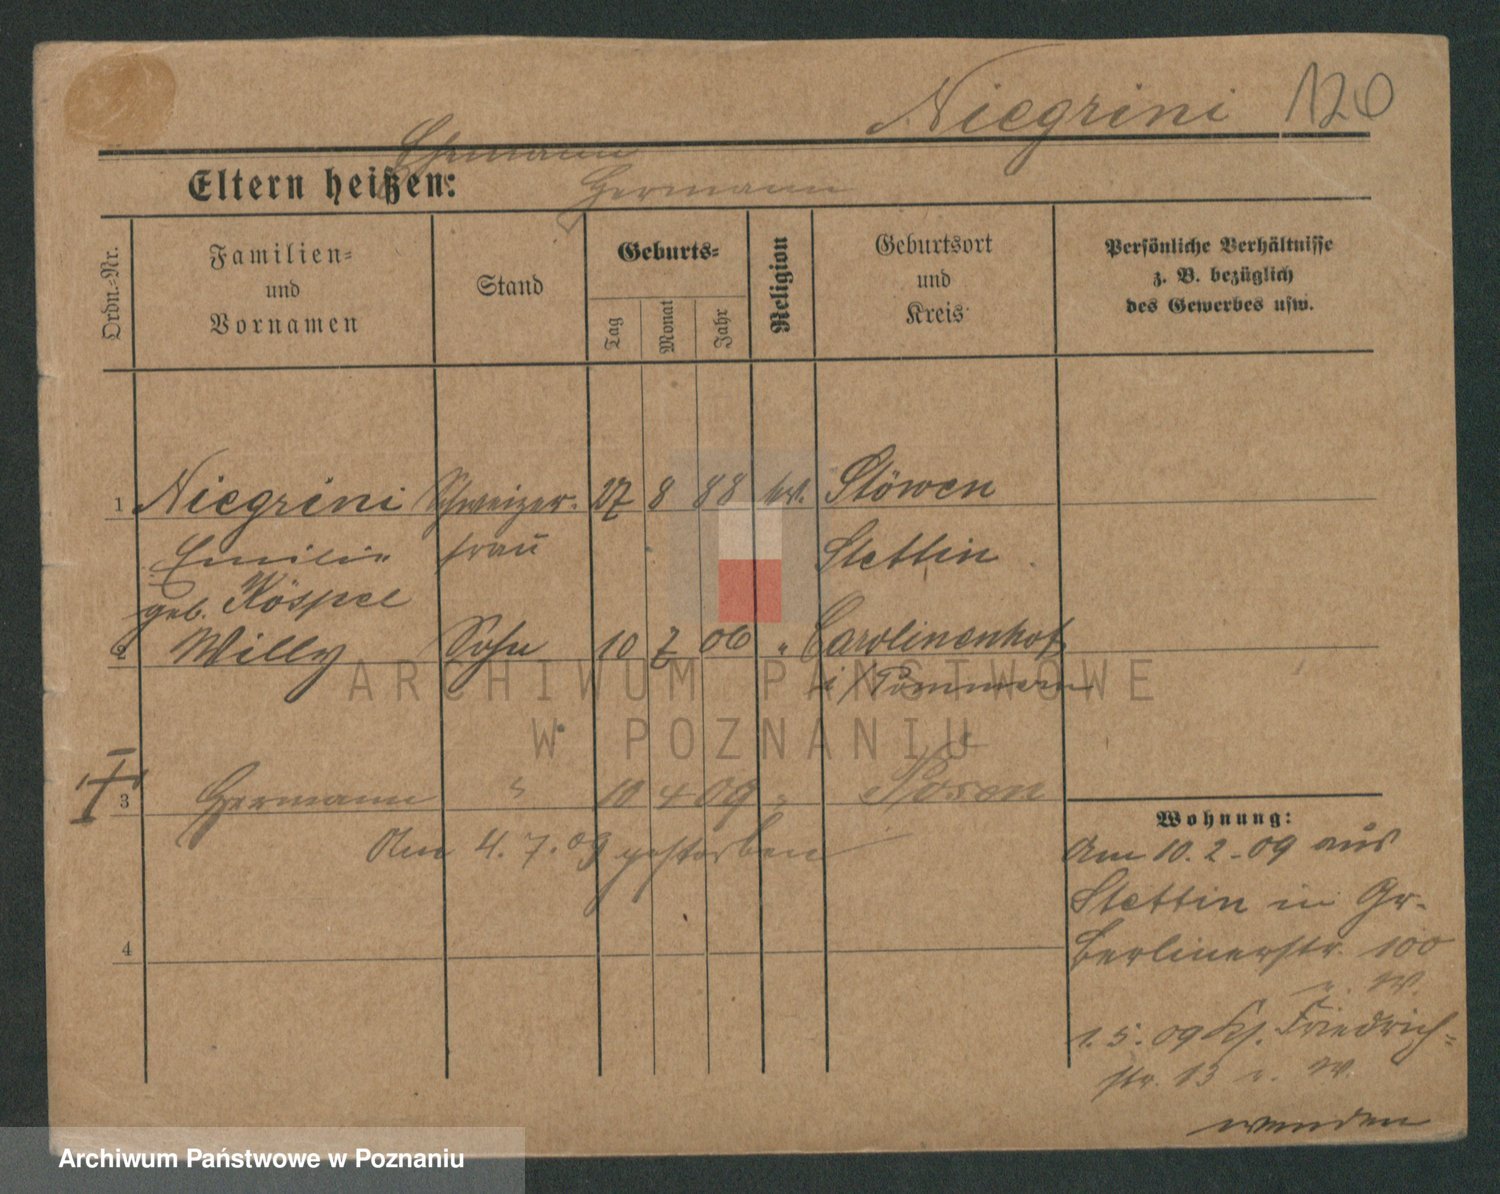 Niegrini 120
Ehemann
Eltern heißen: Hermann
Ordn.-Nr.
Familien-
und
Vornamen
Stand
Geburts-
Tag
Monat
Jahr
Religion
Geburtsort
und
Kreis
Persönliche Verhältnisse
z. B. bezüglich
des Gewerbes usw.
1 Niegrini Schweizer- 27 8 88 ev. Stöwen
Emilie frau Stettin
geb. Köspel
2 Willy Sohn 10 7 06 " Carolinenhof
i/Pommern
3 Hermann " 10 4 09 " Posen
Am 4. 7. 09 gestorben
4
Wohnung:
Am 10. 2. 09 aus
Stettin in Gr.
Berlinerstr. 100
v. W.
1. 5. 09 Kl. Friedrich-
str. 13 v. W.
wenden
ARCHIWUM PAŃSTWOWE
W POZNANIU
Archiwum Państwowe w Poznaniu